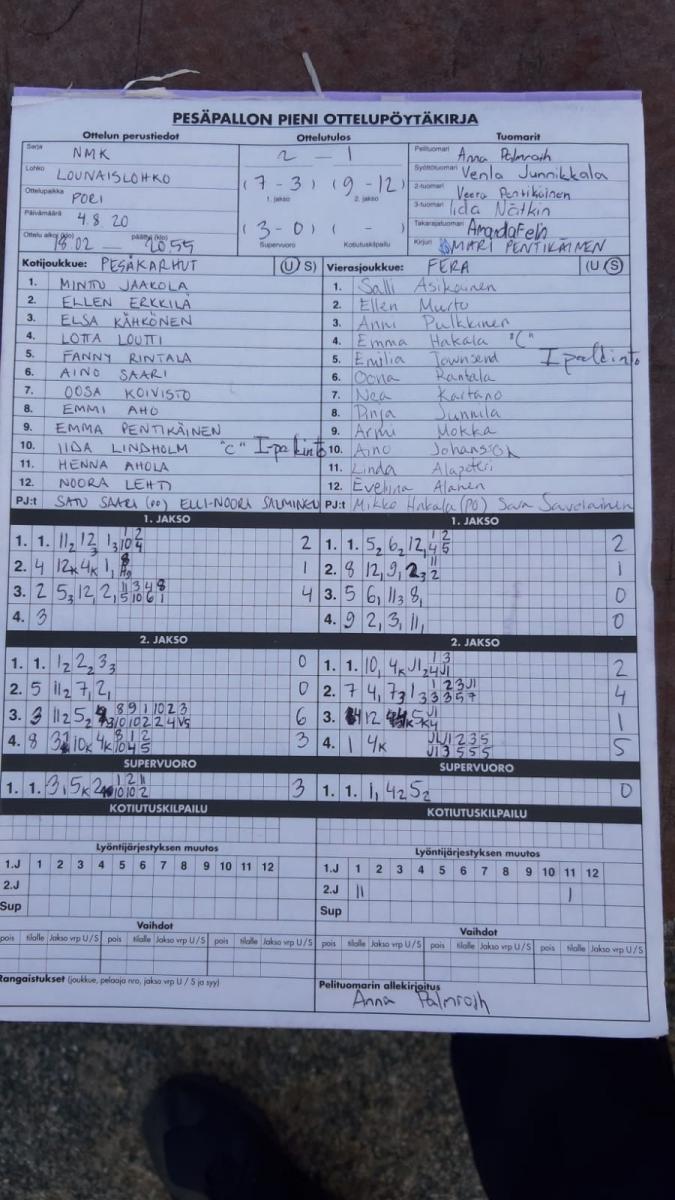 PESÄPALLON PIENI OTTELUPÖYTÄKIRJA
Ottelun perustiedot
Sarja NMK
Lohko LOUNAISLOHKO
Ottelupaikka PORI
Päivämäärä 4.8.20
Ottelu alkoi (klo) 18.02 — päättyi (klo) 20.55
Ottelutulos
2 — 1
(7 - 3) (9 - 12)
1. jakso 2. jakso
(3 - 0) ( - )
Supervuoro Kotiutuskilpailu
Tuomarit
Pelituomari Anna Palmroth
Syöttötuomari Venla Junnikkala
2-tuomari Veera Pentikäinen
3-tuomari Iida Nätkin
Takarajatuomari
Kirjuri MARI PENTIKÄINEN
Kotijoukkue: PESÄKARHUT (U S)
1. MINTTU JAAKOLA
2. ELLEN ERKKILÄ
3. ELSA KÄHKÖNEN
4. LOTTA LOUTTI
5. FANNY RINTALA
6. AINO SAARI
7. OOSA KOIVISTO
8. EMMI AHO
9. EMMA PENTIKÄINEN
10. IIDA LINDHOLM "C" I-palkinto
11. HENNA AHOLA
12. NOORA LEHTI
PJ:t SATU SAARI (PO) ELLI-NOORI SALMINEN
Vierasjoukkue: FERA (U S)
1. Salli Asikainen
2. Ellen Murto
3. Anni Pulkkinen
4. Emma Hakala "C"
5. Emilia Townsend I palkinto
6. Oona Rantala
7. Nea Kaitano
8. Pinja Junnila
9. Armi Mokka
10. Aino Johansson
11. Linda
12. Eveliina Alanen
PJ:t Mikko Hakala (PO) Sara Savolainen
1. JAKSO
1. 1. 11₂ 12₃ 1₃ 2
2. 4 12ₖ 4ₖ 1₁ 1
3. 2 5₃ 12₁ 2₁ 11 3 4 8 4
5 10 6 1
4. 3
1. JAKSO
1. 1. 5₂ 6₂ 12₁ 1 2 2
4 5
2. 8 12₁ 9₁ 1
3. 5 6₁ 11₃ 8₁ 0
4. 9 2₁ 3₁ 11₁ 0
2. JAKSO
1. 1. 1₂ 2₂ 3₃ 0
2. 5 11₂ 7₁ 2₁ 0
3. 3 11₂ 5₂ 8 9 1 10 2 3 6
4. 8 10ₖ 4ₖ 8 1 2 3
10 4 5
2. JAKSO
1. 1. 10₁ 4ₖ J1₂ 1 3 2
4 J1
2. 7 4₁ 7₃ 1₃ 1 2 3 J1 4
3 3 5 7
3. 12 1
4. 1 4ₖ J1 J1 1 2 3 5 5
SUPERVUORO
1. 1. 3₁ 5ₖ 1 2 11 3
10 10 2
SUPERVUORO
1. 1. 1₁ 4₂ 5₂ 0
KOTIUTUSKILPAILU
KOTIUTUSKILPAILU
Lyöntijärjestyksen muutos
1.J 1 2 3 4 5 6 7 8 9 10 11 12
2.J
Sup
Lyöntijärjestyksen muutos
1.J 1 2 3 4 5 6 7 8 9 10 11 12
2.J 11 1
Sup
Vaihdot
pois tilalle Jakso vrp U/S pois tilalle Jakso vrp U/S pois tilalle Jakso vrp U/S
Vaihdot
pois tilalle Jakso vrp U/S pois tilalle Jakso vrp U/S pois tilalle Jakso vrp U/S
Rangaistukset (joukkue, pelaaja nro, jakso vrp U / S ja syy)
Pelituomarin allekirjoitus
Anna Palmroth